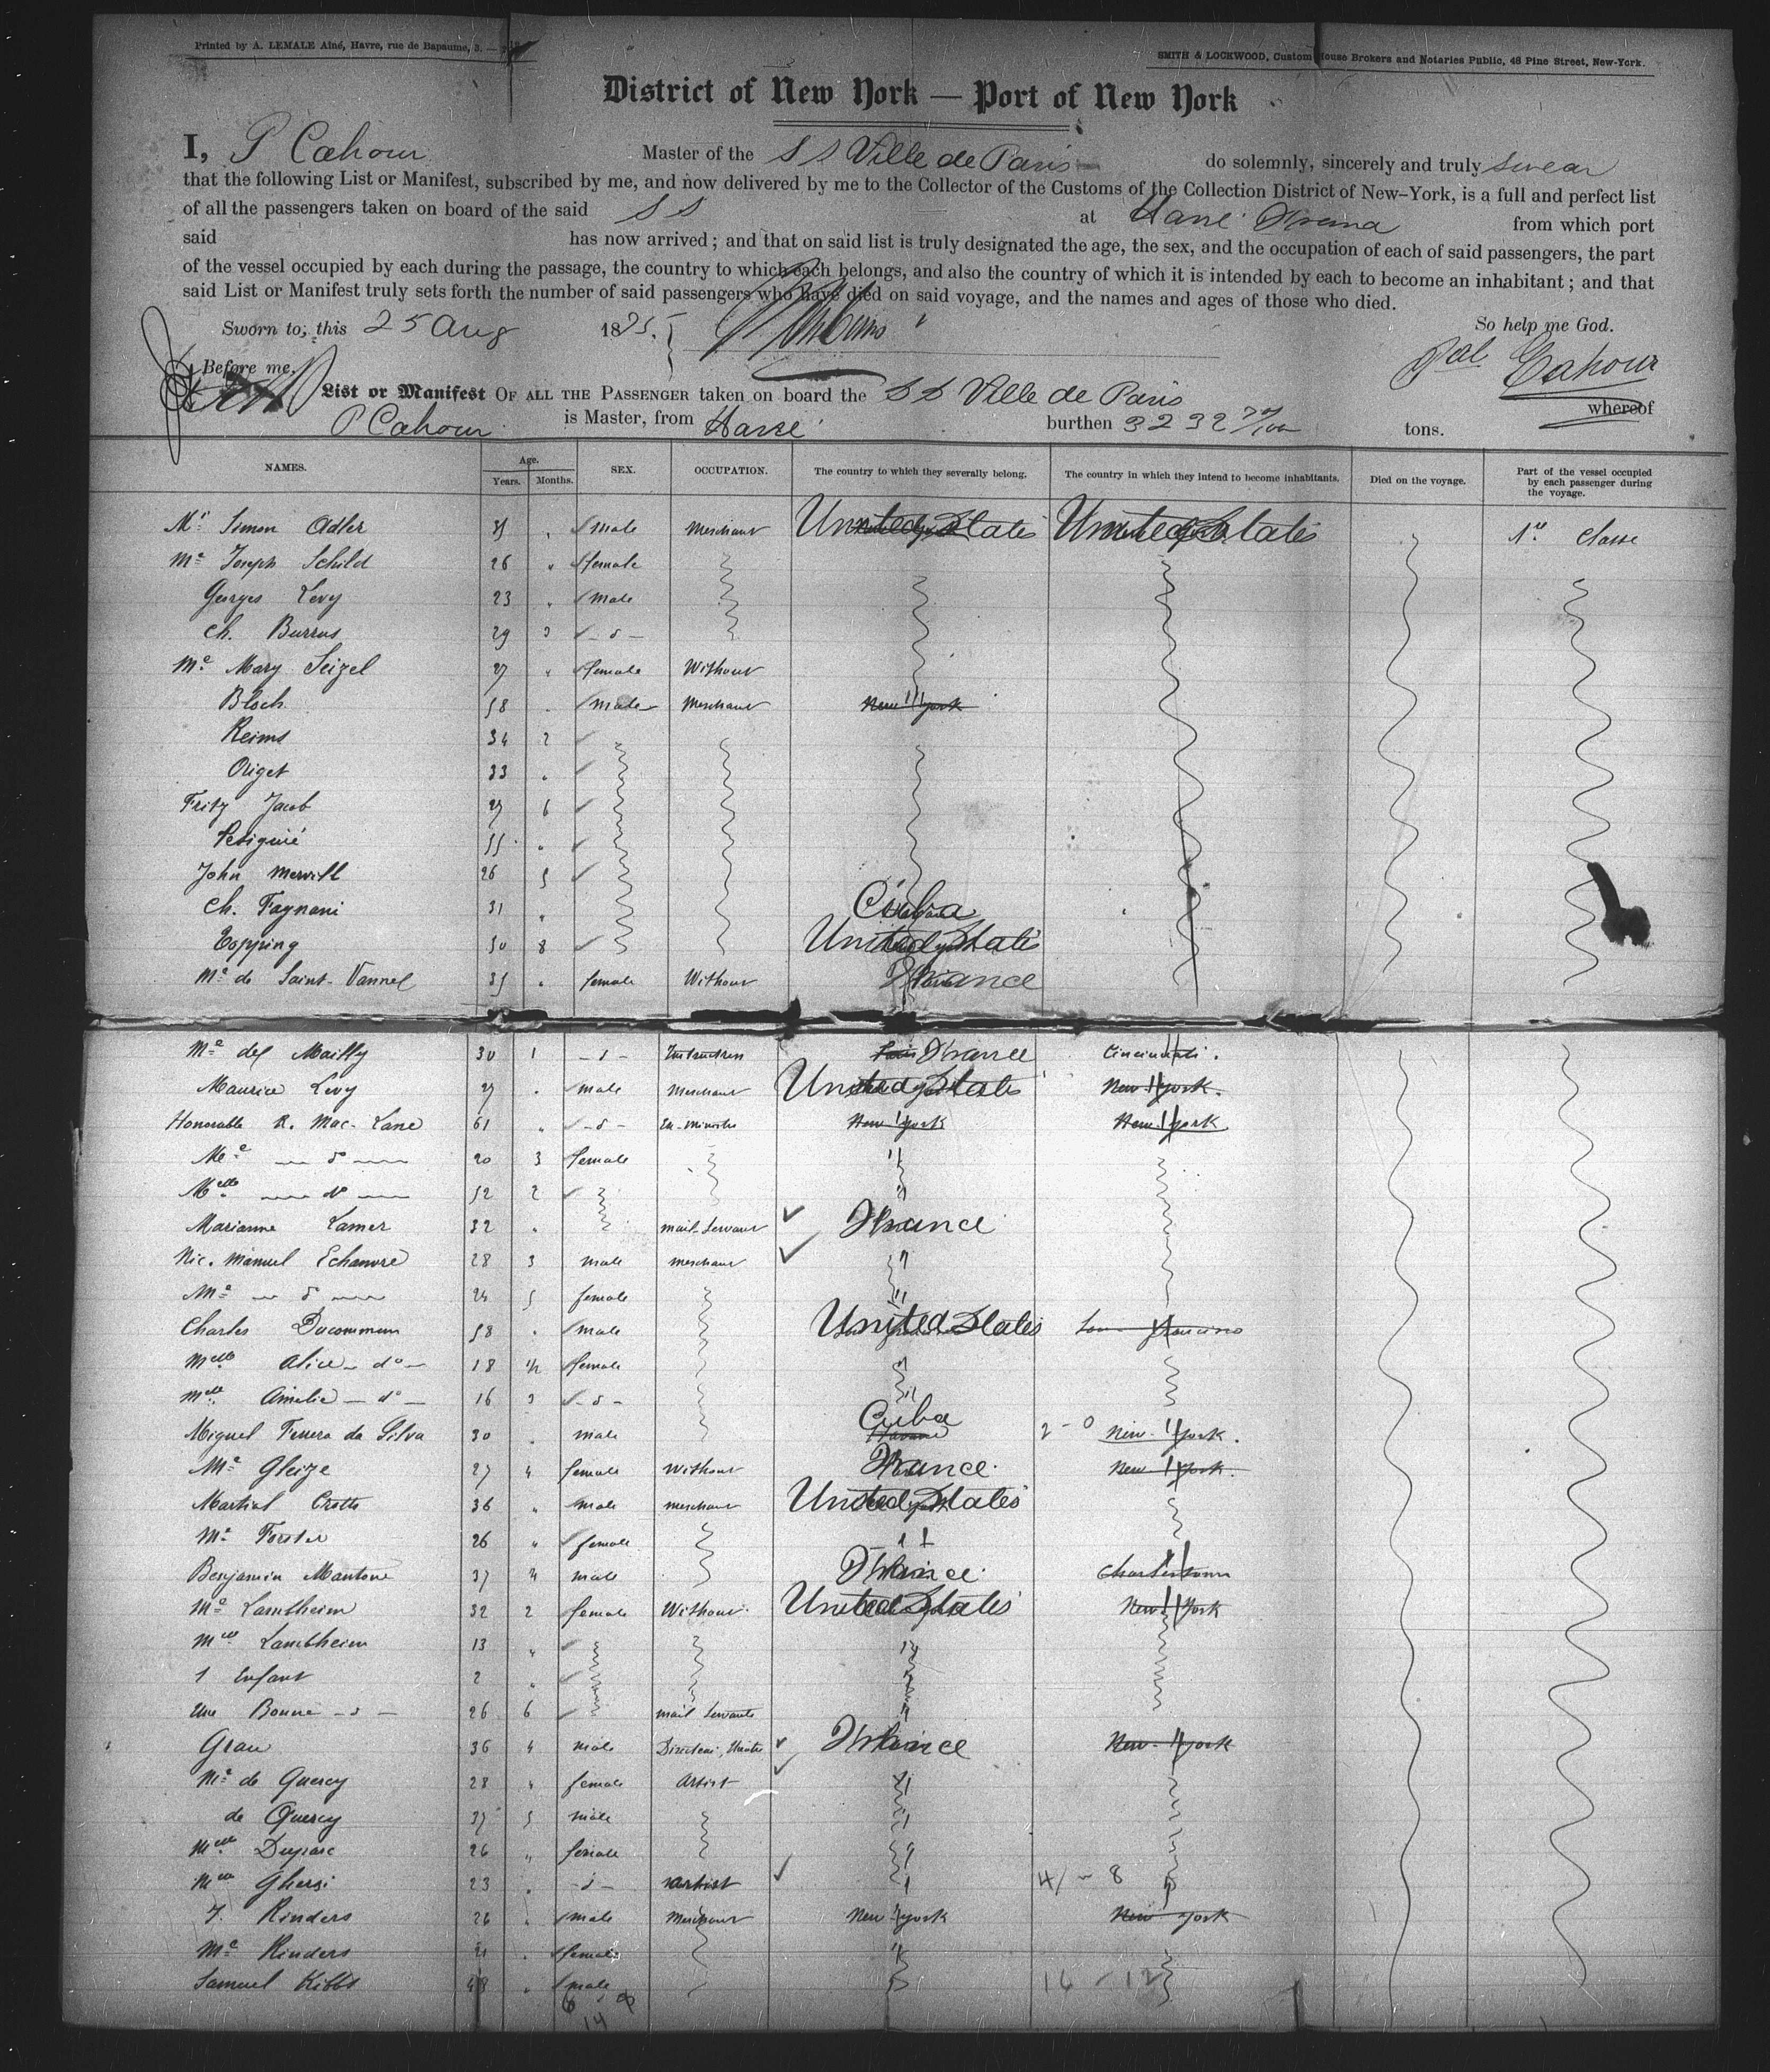 Printed by A. LEMALE Aîné, Havre, rue de Bapaume, 3.
SMITH & LOCKWOOD, Custom House Brokers and Notaries Public, 48 Pine Street, New-York.
District of New York — Port of New York
I, P Cahour Master of the SS Ville de Paris do solemnly, sincerely and truly swear
that the following List or Manifest, subscribed by me, and now delivered by me to the Collector of the Customs of the Collection District of New-York, is a full and perfect list
of all the passengers taken on board of the said SS at from which port
said has now arrived; and that on said list is truly designated the age, the sex, and the occupation of each of said passengers, the part
of the vessel occupied by each during the passage, the country to which each belongs, and also the country of which it is intended by each to become an inhabitant; and that
said List or Manifest truly sets forth the number of said passengers who have died on said voyage, and the names and ages of those who died.
Sworn to, this 25 Aug 1875. So help me God.
Before me, Cahour
List or Manifest OF ALL THE PASSENGER taken on board the SS Ville de Paris whereof
P Cahour is Master, from Havre burthen 3232 tons.
NAMES. Age. Years. Months. SEX. OCCUPATION. The country to which they severally belong. The country in which they intend to become inhabitants. Died on the voyage. Part of the vessel occupied by each passenger during the voyage.
Mr Simon Adler male Merchant United States United States 1re Classe
Me Joseph Schild 26 " female
Georges Levy 23 " male
Ch. Burrus 29 3 - d -
Me Mary Seizel 27 " female Without
Bloch 58 male Merchant New York
Reims 34 2
Origet 33 "
Fritz Jacob 27 6
55 "
John 26 5
Ch. Fagnani 31 " Cuba
Topping 50 8 United States
Me de Saint-Vannel 35 " female Without France
Me del Mailly 30 1 - d - France Cincinnati.
Maurice Levy 27 " male Merchant United States New York.
Honorable R. Mac-Lane 61 " - d - Ex-Ministre New York New York
Me — do — 20 3 female "
Melle — do — 52 2 "
Marianne Lamer 32 " mail Servant France
Nic. Manuel Echanove 28 3 male merchant "
Me — do — 24 5 female "
Charles Ducommun 58 " male United States San Francisco
Melle Alice — do — 18 female "
Melle Amelie — do — 16 3 - d - "
Miguel da Silva 30 " male Cuba Havana 2 - 0 New York.
Me Gleize 27 4 female Without France New York.
Martial 36 " male merchant United States
Me Forster 26 " female "
Benjamin Mantoue 37 male France Charlestown
Me Lambheim 32 2 female Without United States New York
Melle Lambheim 13 " "
1 Enfant 2 " "
Une Bonne - d - 26 6 mail Servante "
Grau 36 4 male France New York
Me de Quercy 28 4 female Artist "
de Quercy 37 5 male "
Melle Duparc 26 " female "
Melle Ghersi 23 " - d - Artist " 4 - 8
J. Rinders 26 " male Merchant New York New York
Me Rinders 21 " female "
Samuel Kibbs 48 " male 16 - 12
14